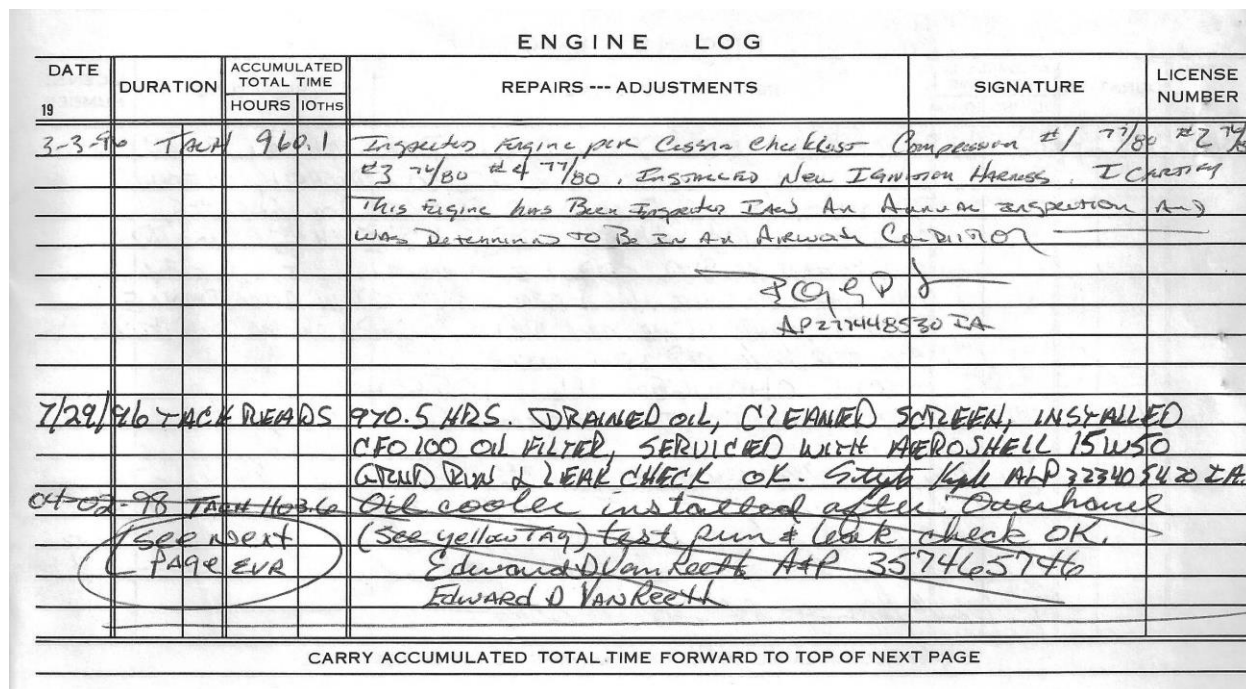 ENGINE LOG
DATE DURATION ACCUMULATED TOTAL TIME REPAIRS --- ADJUSTMENTS SIGNATURE LICENSE NUMBER
19 HOURS 10THS
3-3-96 TACH 960.1 Inspected Engine per Cessna Checklist Compression #1 77/80 #2 74/80
#3 74/80 #4 77/80. Installed New Ignition Harness. I Certify
This Engine has Been Inspected IAW An Annual Inspection And
was Determined TO Be In An Airworth Condition
IA
7/29/96 TACH READS 970.5 HRS. DRAINED OIL, CLEANED SCREEN, INSTALLED
CFO100 OIL FILTER, SERVICED WITH AEROSHELL 15W50
GRND RUN & LEAK CHECK OK. Kyle A&P IA
04-02-98 TACH 1103.6 Oil cooler installed after Overhaul
(See Next (See yellow TAg) test Run & leak check OK.
PAge EVR Edward D Van Reeth A&P 357465746
Edward D Van Reeth
CARRY ACCUMULATED TOTAL TIME FORWARD TO TOP OF NEXT PAGE